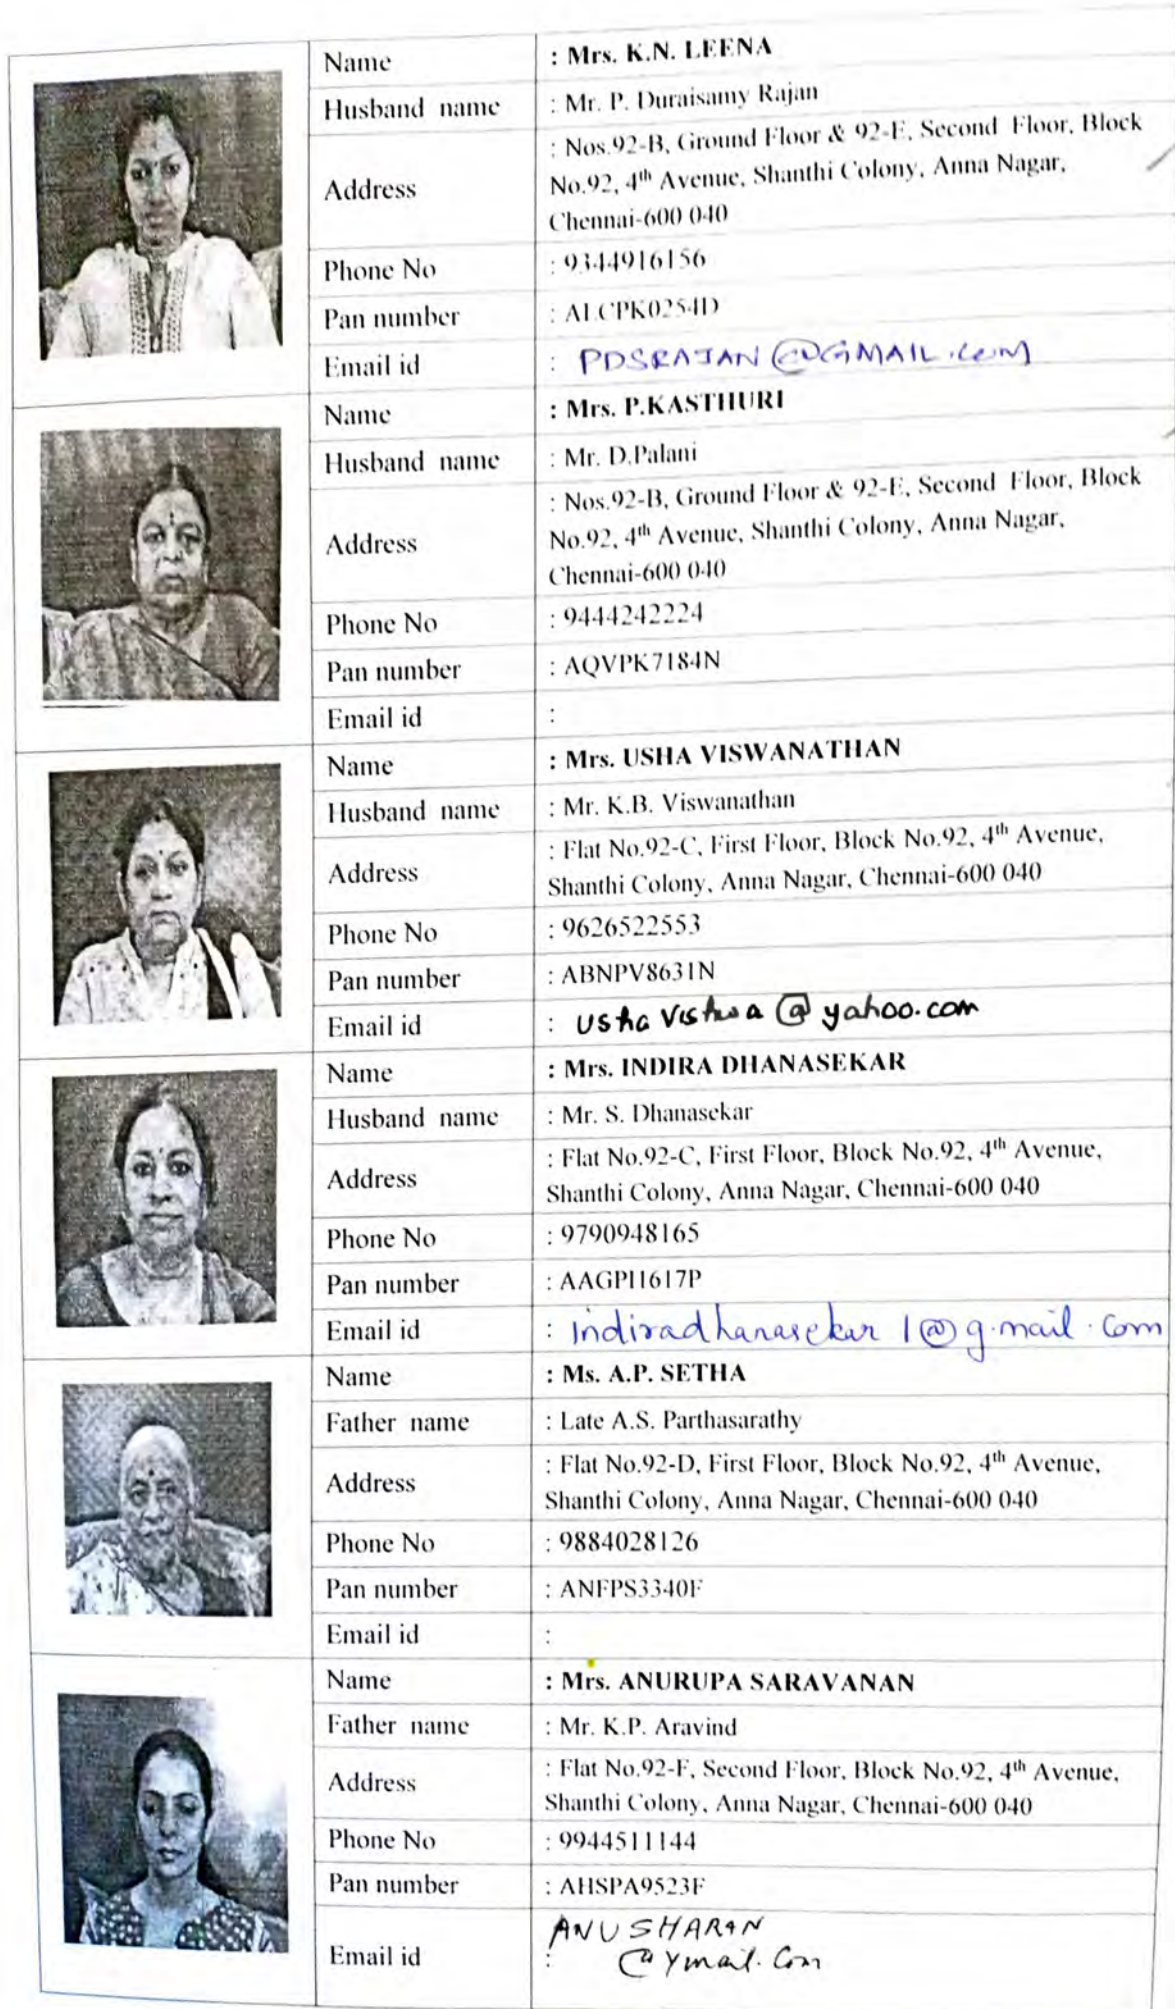 Name : Mrs. K.N. LEENA
Husband name : Mr. P. Duraisamy Rajan
: Nos.92-B, Ground Floor & 92-E, Second Floor, Block
Address No.92, 4th Avenue, Shanthi Colony, Anna Nagar,
Chennai-600 040
Phone No : 9344916156
Pan number : ALCPK0254D
Email id : PDSRAJAN@GMAIL.COM
Name : Mrs. P.KASTHURI
Husband name : Mr. D.Palani
: Nos.92-B, Ground Floor & 92-E, Second Floor, Block
Address No.92, 4th Avenue, Shanthi Colony, Anna Nagar,
Chennai-600 040
Phone No : 9444242224
Pan number : AQVPK7184N
Email id :
Name : Mrs. USHA VISWANATHAN
Husband name : Mr. K.B. Viswanathan
: Flat No.92-C, First Floor, Block No.92, 4th Avenue,
Address Shanthi Colony, Anna Nagar, Chennai-600 040
Phone No : 9626522553
Pan number : ABNPV8631N
Email id : @ yahoo.com
Name : Mrs. INDIRA DHANASEKAR
Husband name : Mr. S. Dhanasekar
: Flat No.92-C, First Floor, Block No.92, 4th Avenue,
Address Shanthi Colony, Anna Nagar, Chennai-600 040
Phone No : 9790948165
Pan number : AAGPI1617P
Email id : indiradhanasekar 1@g.mail.com
Name : Ms. A.P. SETHA
Father name : Late A.S. Parthasarathy
: Flat No.92-D, First Floor, Block No.92, 4th Avenue,
Address Shanthi Colony, Anna Nagar, Chennai-600 040
Phone No : 9884028126
Pan number : ANFPS3340F
Email id :
Name : Mrs. ANURUPA SARAVANAN
Father name : Mr. K.P. Aravind
: Flat No.92-F, Second Floor, Block No.92, 4th Avenue,
Address Shanthi Colony, Anna Nagar, Chennai-600 040
Phone No : 9944511144
Pan number : AHSPA9523F
ANUSHARAN
Email id : @ymail.com